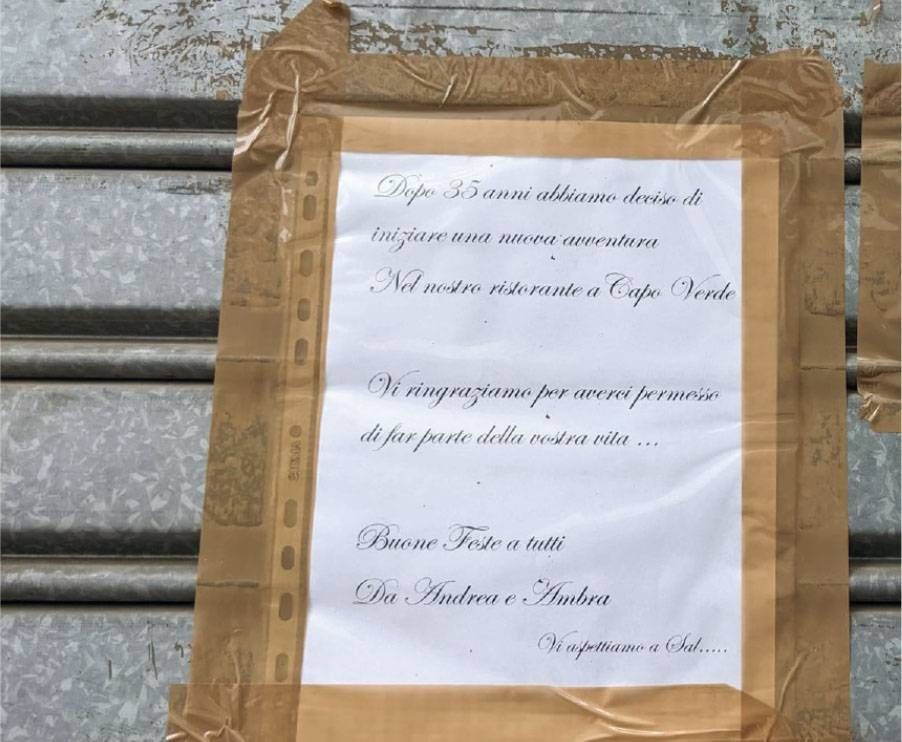 Dopo 35 anni abbiamo deciso di
iniziare una nuova avventura
Nel nostro ristorante a Capo Verde
Vi ringraziamo per averci permesso
di far parte della vostra vita ...
Buone Feste a tutti
Da Andrea e Ambra
Vi aspettiamo a Sal.....